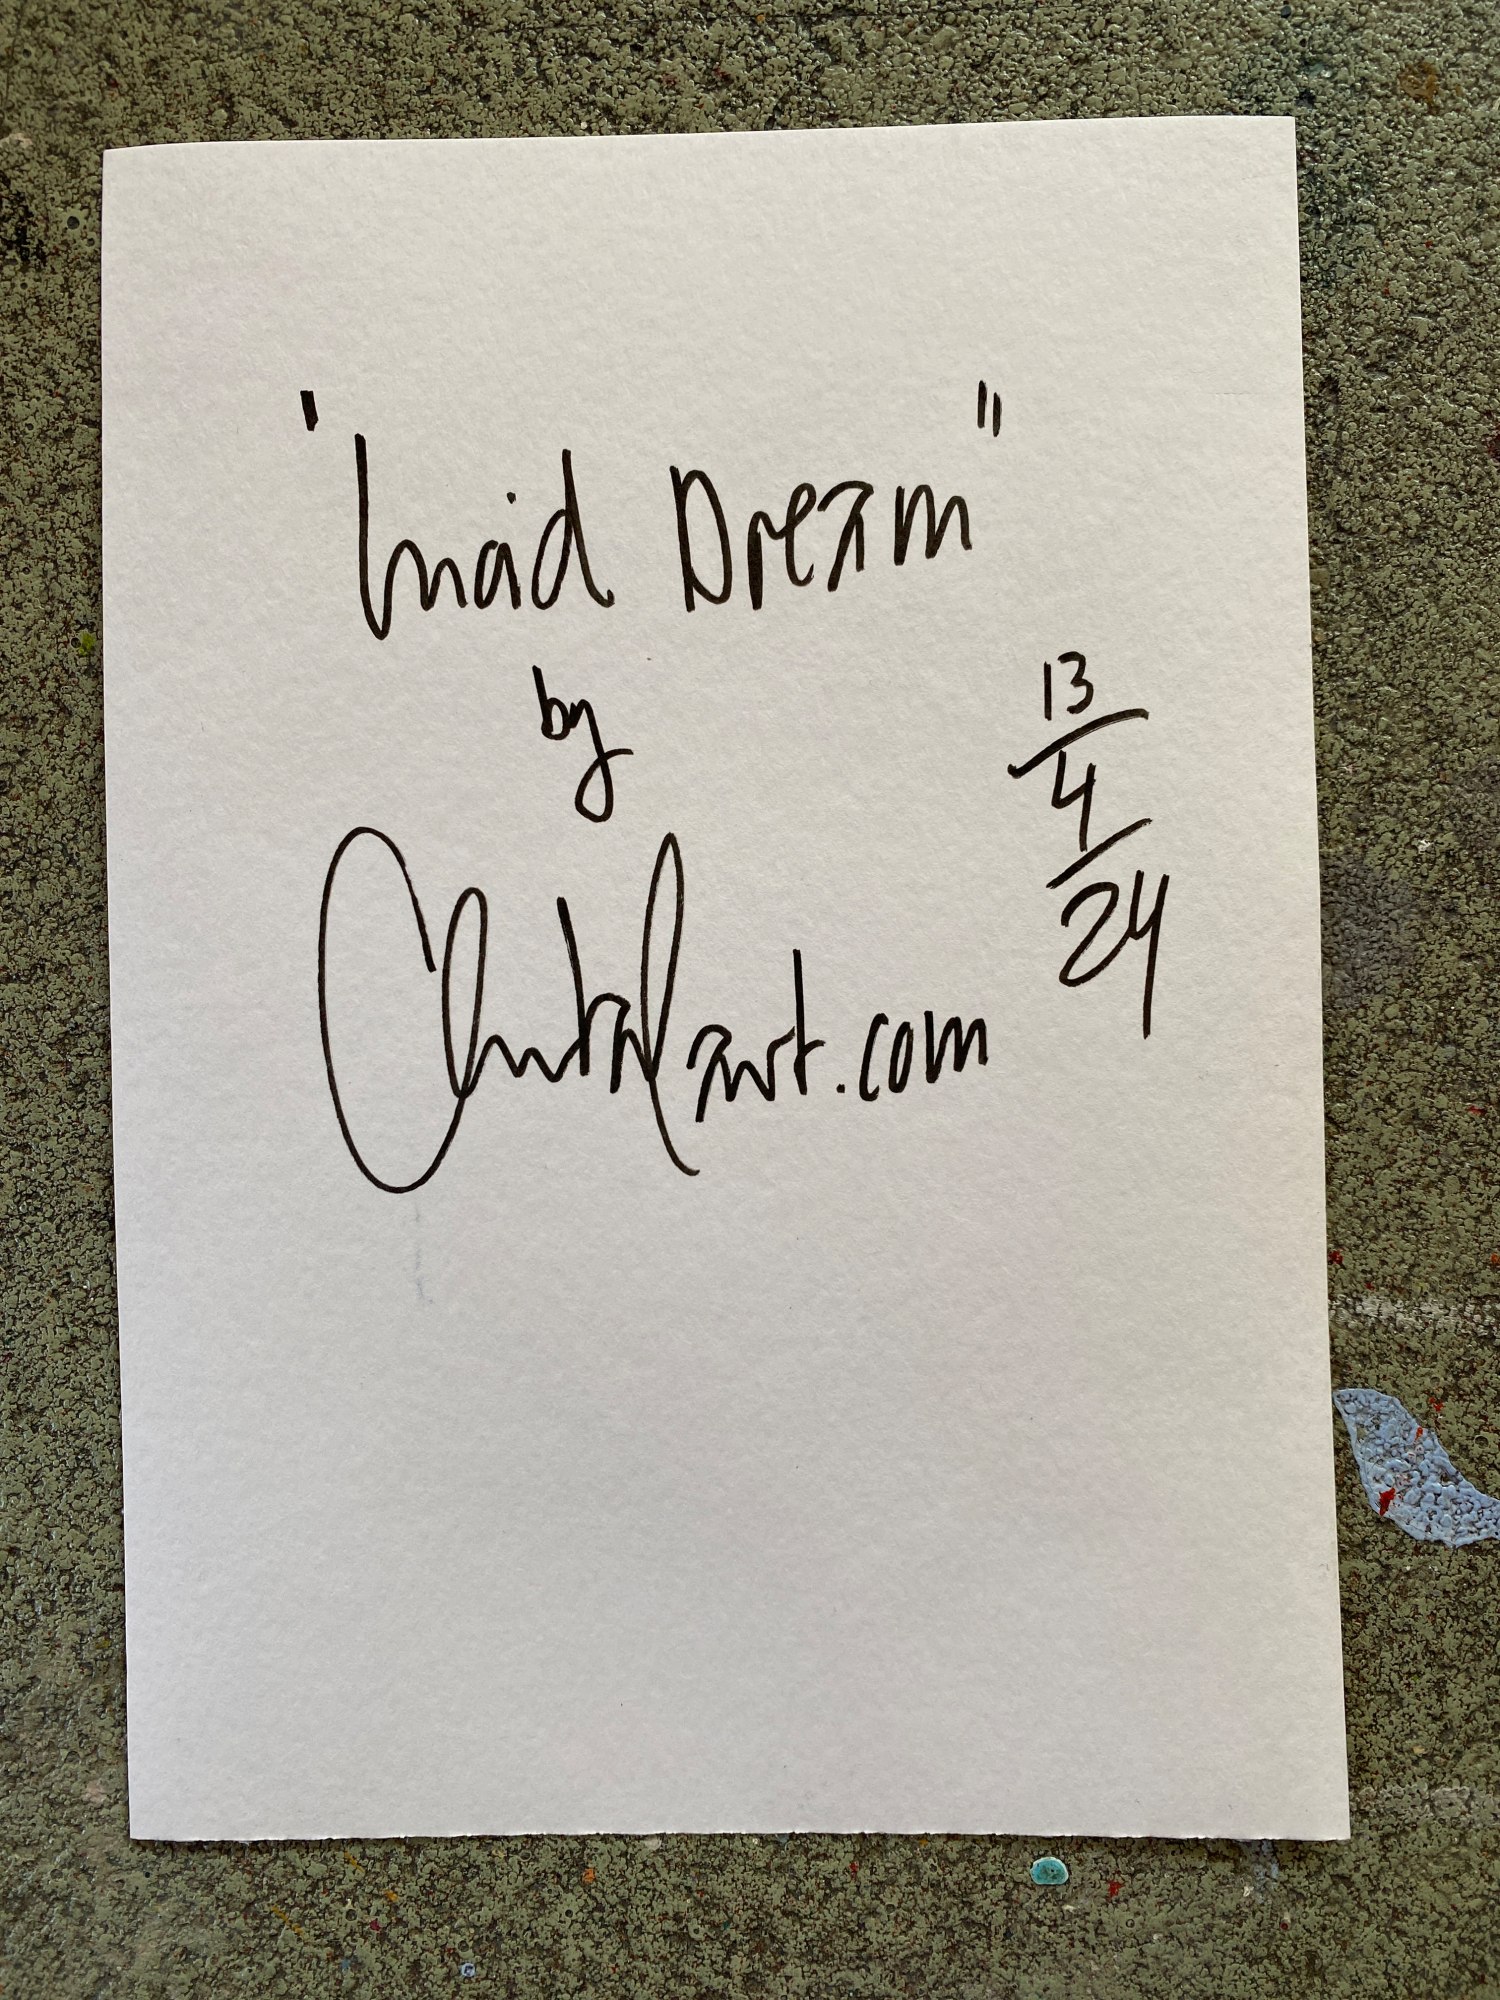 "Lucid Dream"
by
13/4/24
.com